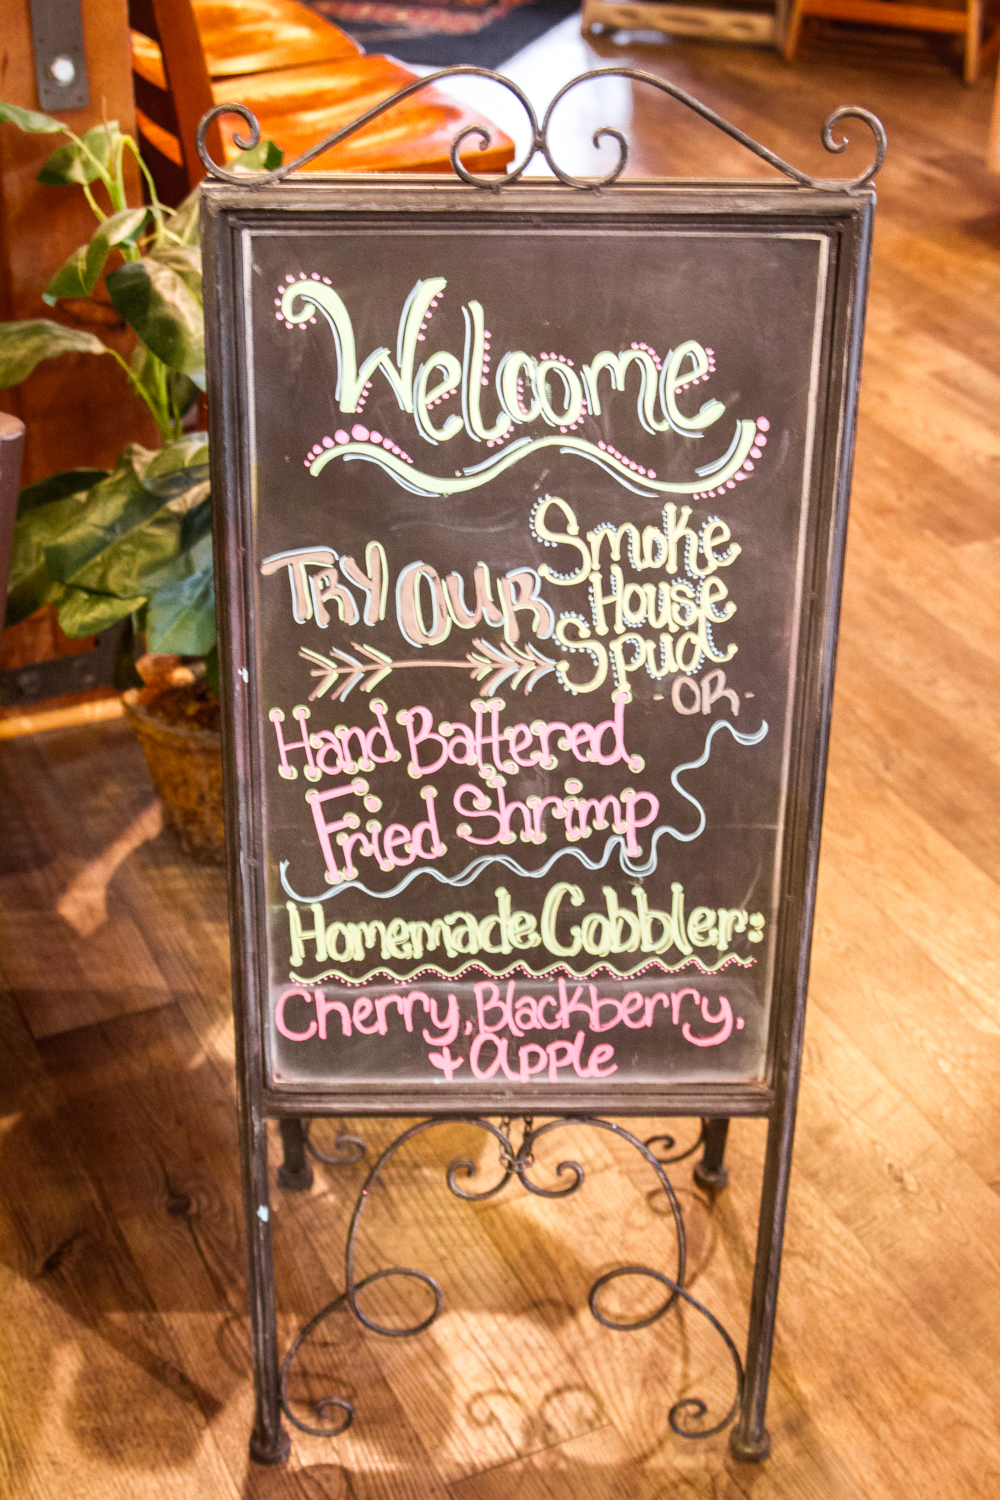 Welcome
TRY OUR Smoke
House
Spud
-OR-
Hand Battered
Fried Shrimp
Homemade Cobbler:
Cherry, Blackberry,
+ apple